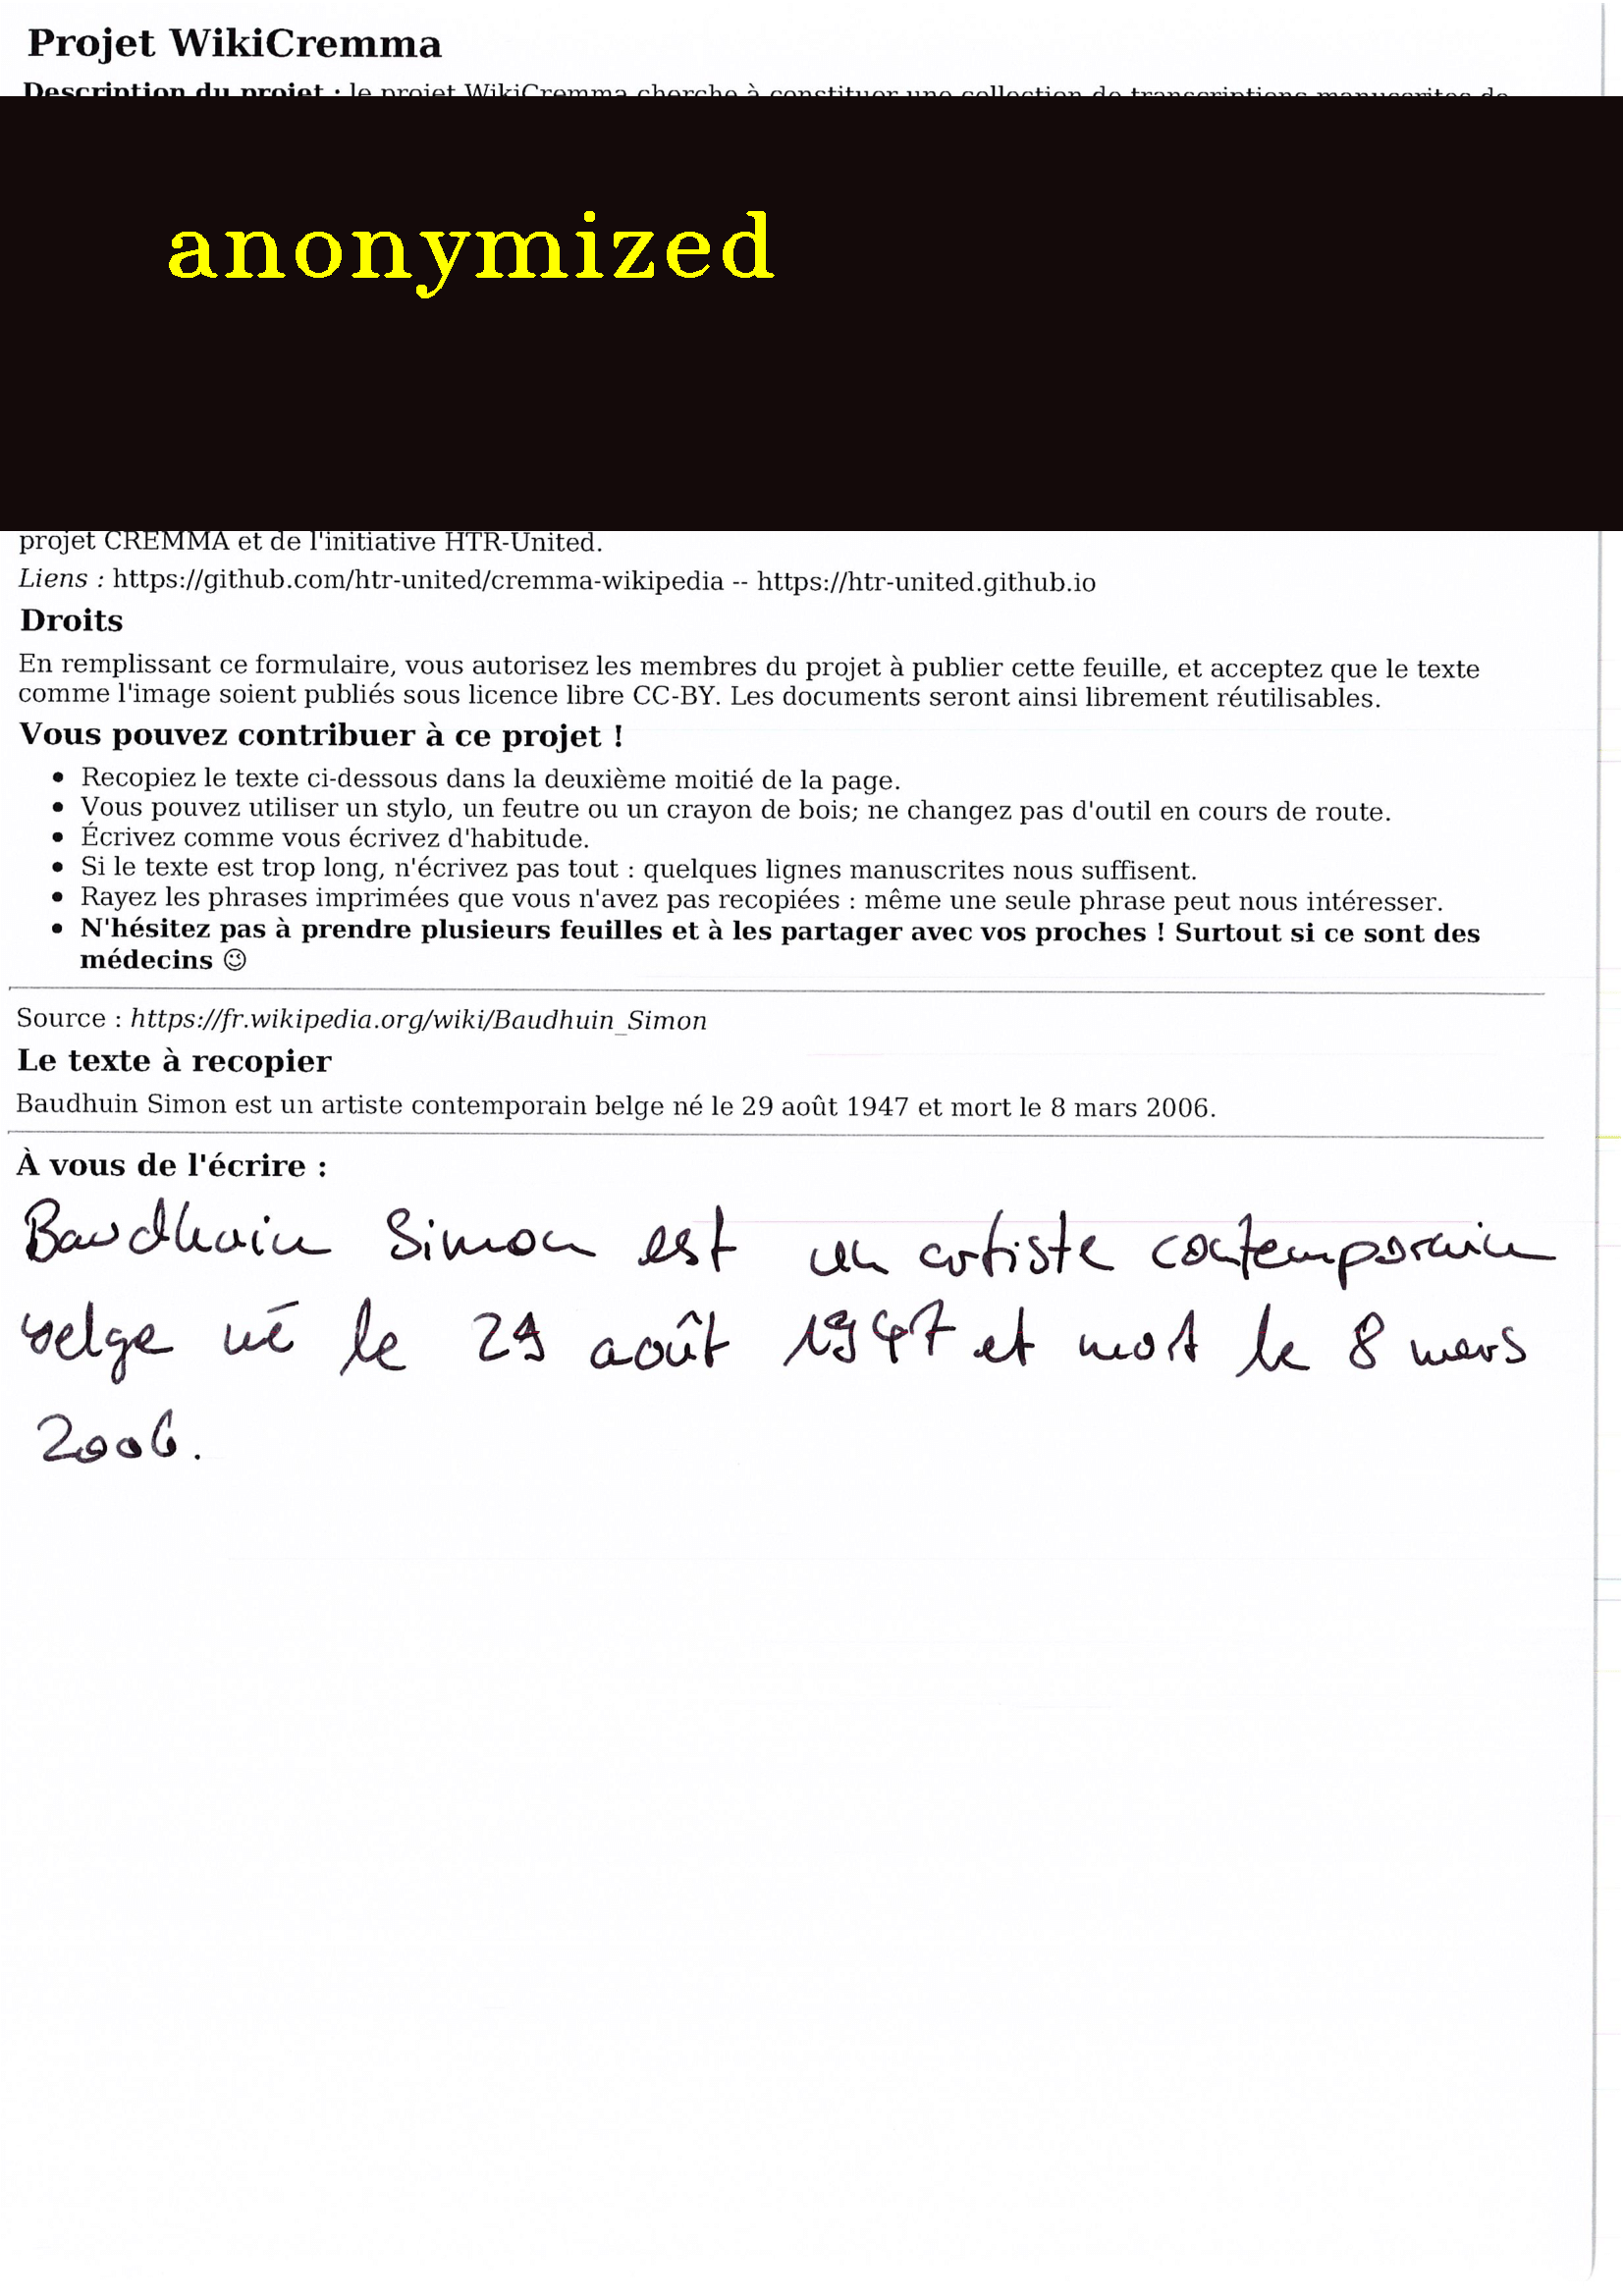 Projet WikiCremma
Description du projet : le projet WikiCremma cherche à constituer une collection de transcriptions manuscrites de
anonymized
projet CREMMA et de l'initiative HTR-United.
Liens : https://github.com/htr-united/cremma-wikipedia -- https://htr-united.github.io
Droits
En remplissant ce formulaire, vous autorisez les membres du projet à publier cette feuille, et acceptez que le texte
comme l'image soient publiés sous licence libre CC-BY. Les documents seront ainsi librement réutilisables.
Vous pouvez contribuer à ce projet !
• Recopiez le texte ci-dessous dans la deuxième moitié de la page.
• Vous pouvez utiliser un stylo, un feutre ou un crayon de bois; ne changez pas d'outil en cours de route.
• Écrivez comme vous écrivez d'habitude.
• Si le texte est trop long, n'écrivez pas tout : quelques lignes manuscrites nous suffisent.
• Rayez les phrases imprimées que vous n'avez pas recopiées : même une seule phrase peut nous intéresser.
• N'hésitez pas à prendre plusieurs feuilles et à les partager avec vos proches ! Surtout si ce sont des
médecins ☺
Source : https://fr.wikipedia.org/wiki/Baudhuin_Simon
Le texte à recopier
Baudhuin Simon est un artiste contemporain belge né le 29 août 1947 et mort le 8 mars 2006.
À vous de l'écrire :
Baudhuin Simon est un artiste contemporain
belge né le 29 août 1947 et mort le 8 mars
2006.